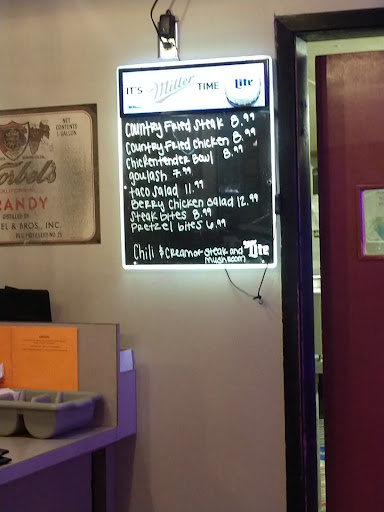 IT'S Miller TIME Lite
Country Fried Steak 8.99
Country Fried Chicken 8.99
Chickentender Bowl 8.99
goulash 7.99
taco salad 11.99
Berry Chicken Salad 12.99
Steak bites 8.99
Pretzel bites 6.99
Chili & Cream of Steak and
Mushroom
Lite
NET
CONTENTS
1 GALLON
orbel's
CALIFORNIA
RANDY
DISTILLED BY
EL & BROS., INC.